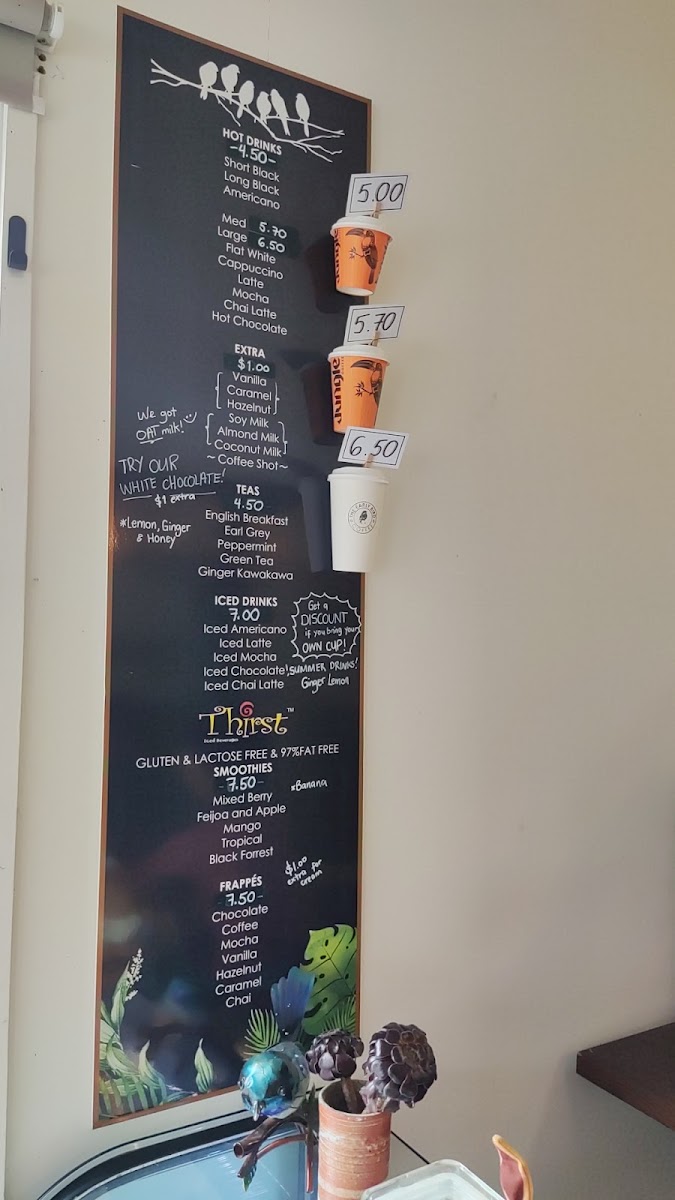 HOT DRINKS
-4.50-
Short Black
Long Black
Americano
Med 5.70
Large 6.50
Flat White
Cappuccino
Latte
Mocha
Chai Latte
Hot Chocolate
EXTRA
$1.00
Vanilla
Caramel
Hazelnut
Soy Milk
Almond Milk
Coconut Milk
~Coffee Shot~
We got
OAT milk!
TRY OUR
WHITE CHOCOLATE!
$1 extra
TEAS
4.50
English Breakfast
Earl Grey
Peppermint
Green Tea
Ginger Kawakawa
*Lemon, Ginger
& Honey
ICED DRINKS
7.00
Iced Americano
Iced Latte
Iced Mocha
Iced Chocolate
Iced Chai Latte
Get a
DISCOUNT
if you bring your
OWN CUP!
SUMMER DRINKS!
Ginger Lemon
Thirst™
Iced Beverages
GLUTEN & LACTOSE FREE & 97%FAT FREE
SMOOTHIES
-7.50-
Mixed Berry
Feijoa and Apple
Mango
Tropical
Black Forrest
*Banana
FRAPPÉS
-7.50-
Chocolate
Coffee
Mocha
Vanilla
Hazelnut
Caramel
Chai
$1.00
extra for
cream
5.00
5.70
Jungle
6.50